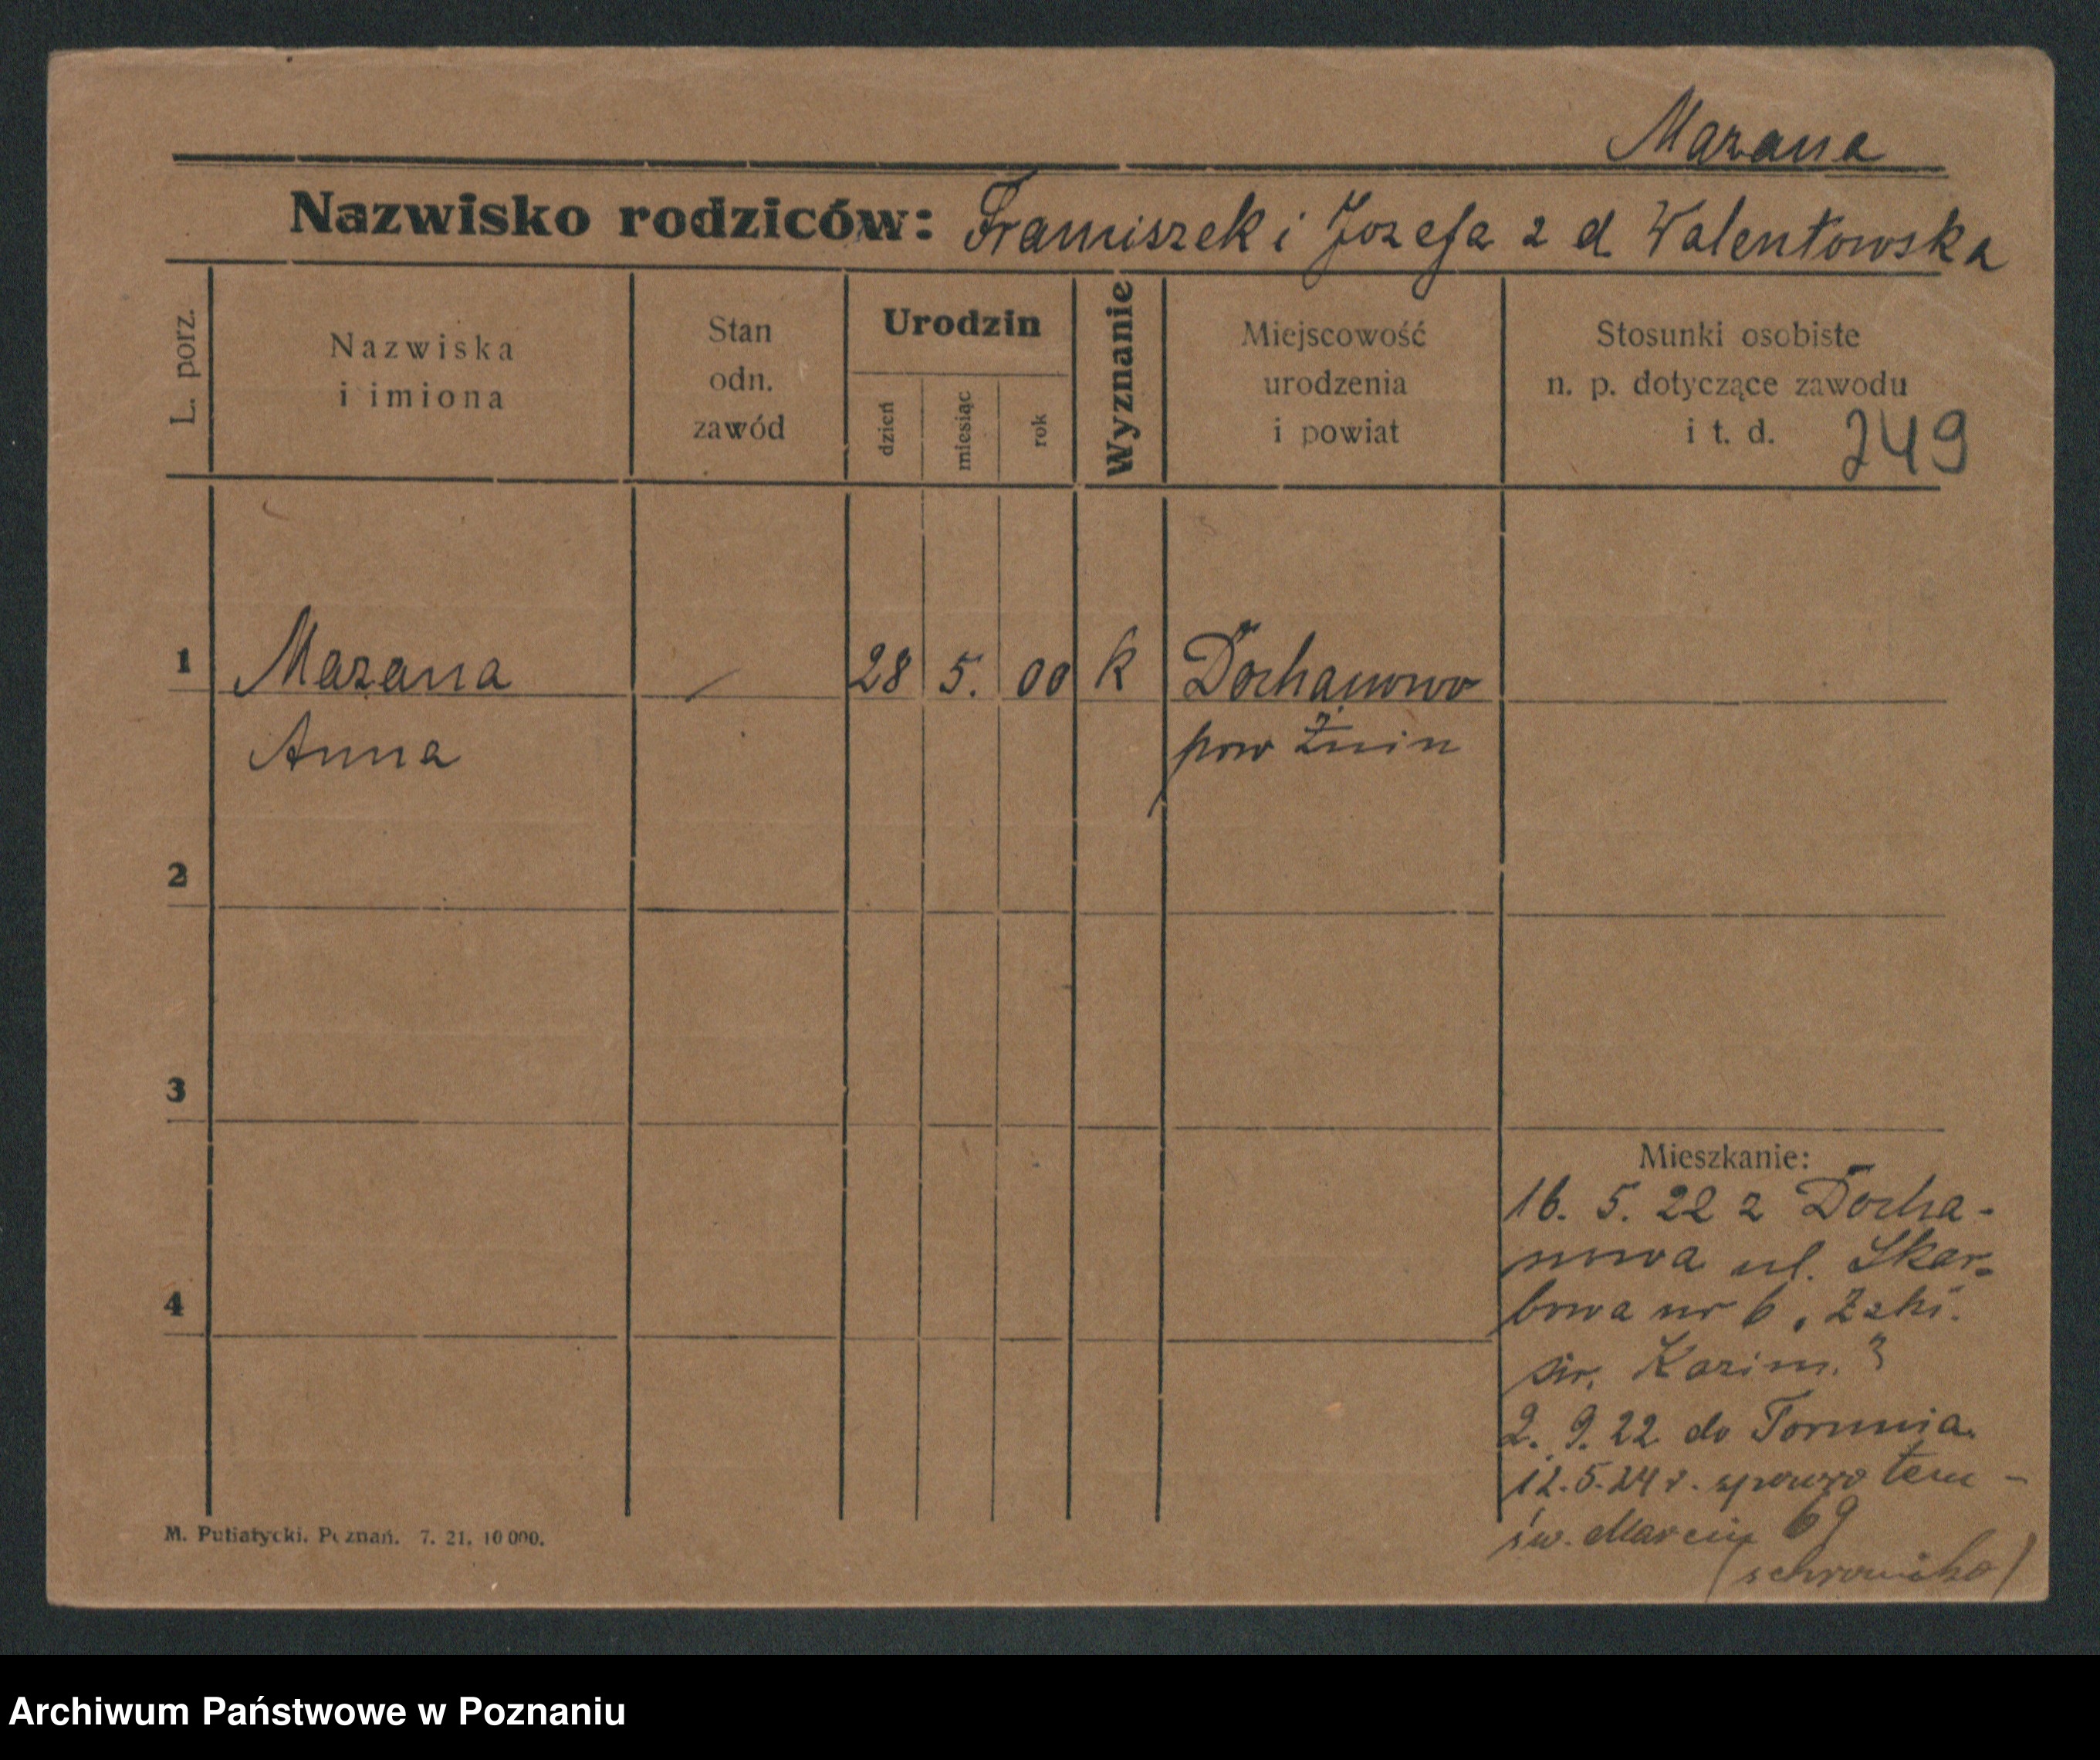 Mazana
Nazwisko rodziców: Franciszek i Jozefa z d Walentowska
L. porz.
Nazwiska
i imiona
Stan
odn.
zawód
Urodzin
dzień
miesiąc
rok
Wyznanie
Miejscowość
urodzenia
i powiat
Stosunki osobiste
n. p. dotyczące zawodu
i t. d. 249
1 Mazana 28 5. 00 k Dochanowo
Anna pow Żnin
2
3
4
Mieszkanie:
16. 5. 22 z Docha-
nowa ul. Skar-
bowa nr 6
św. Kazim."
2. 9. 22 do Torunia.
12.5.24 r. spowrotem -
św. Marcin 69
(schronisko)
M. Putiatycki. Poznań. 7. 21. 10 000.
Archiwum Państwowe w Poznaniu